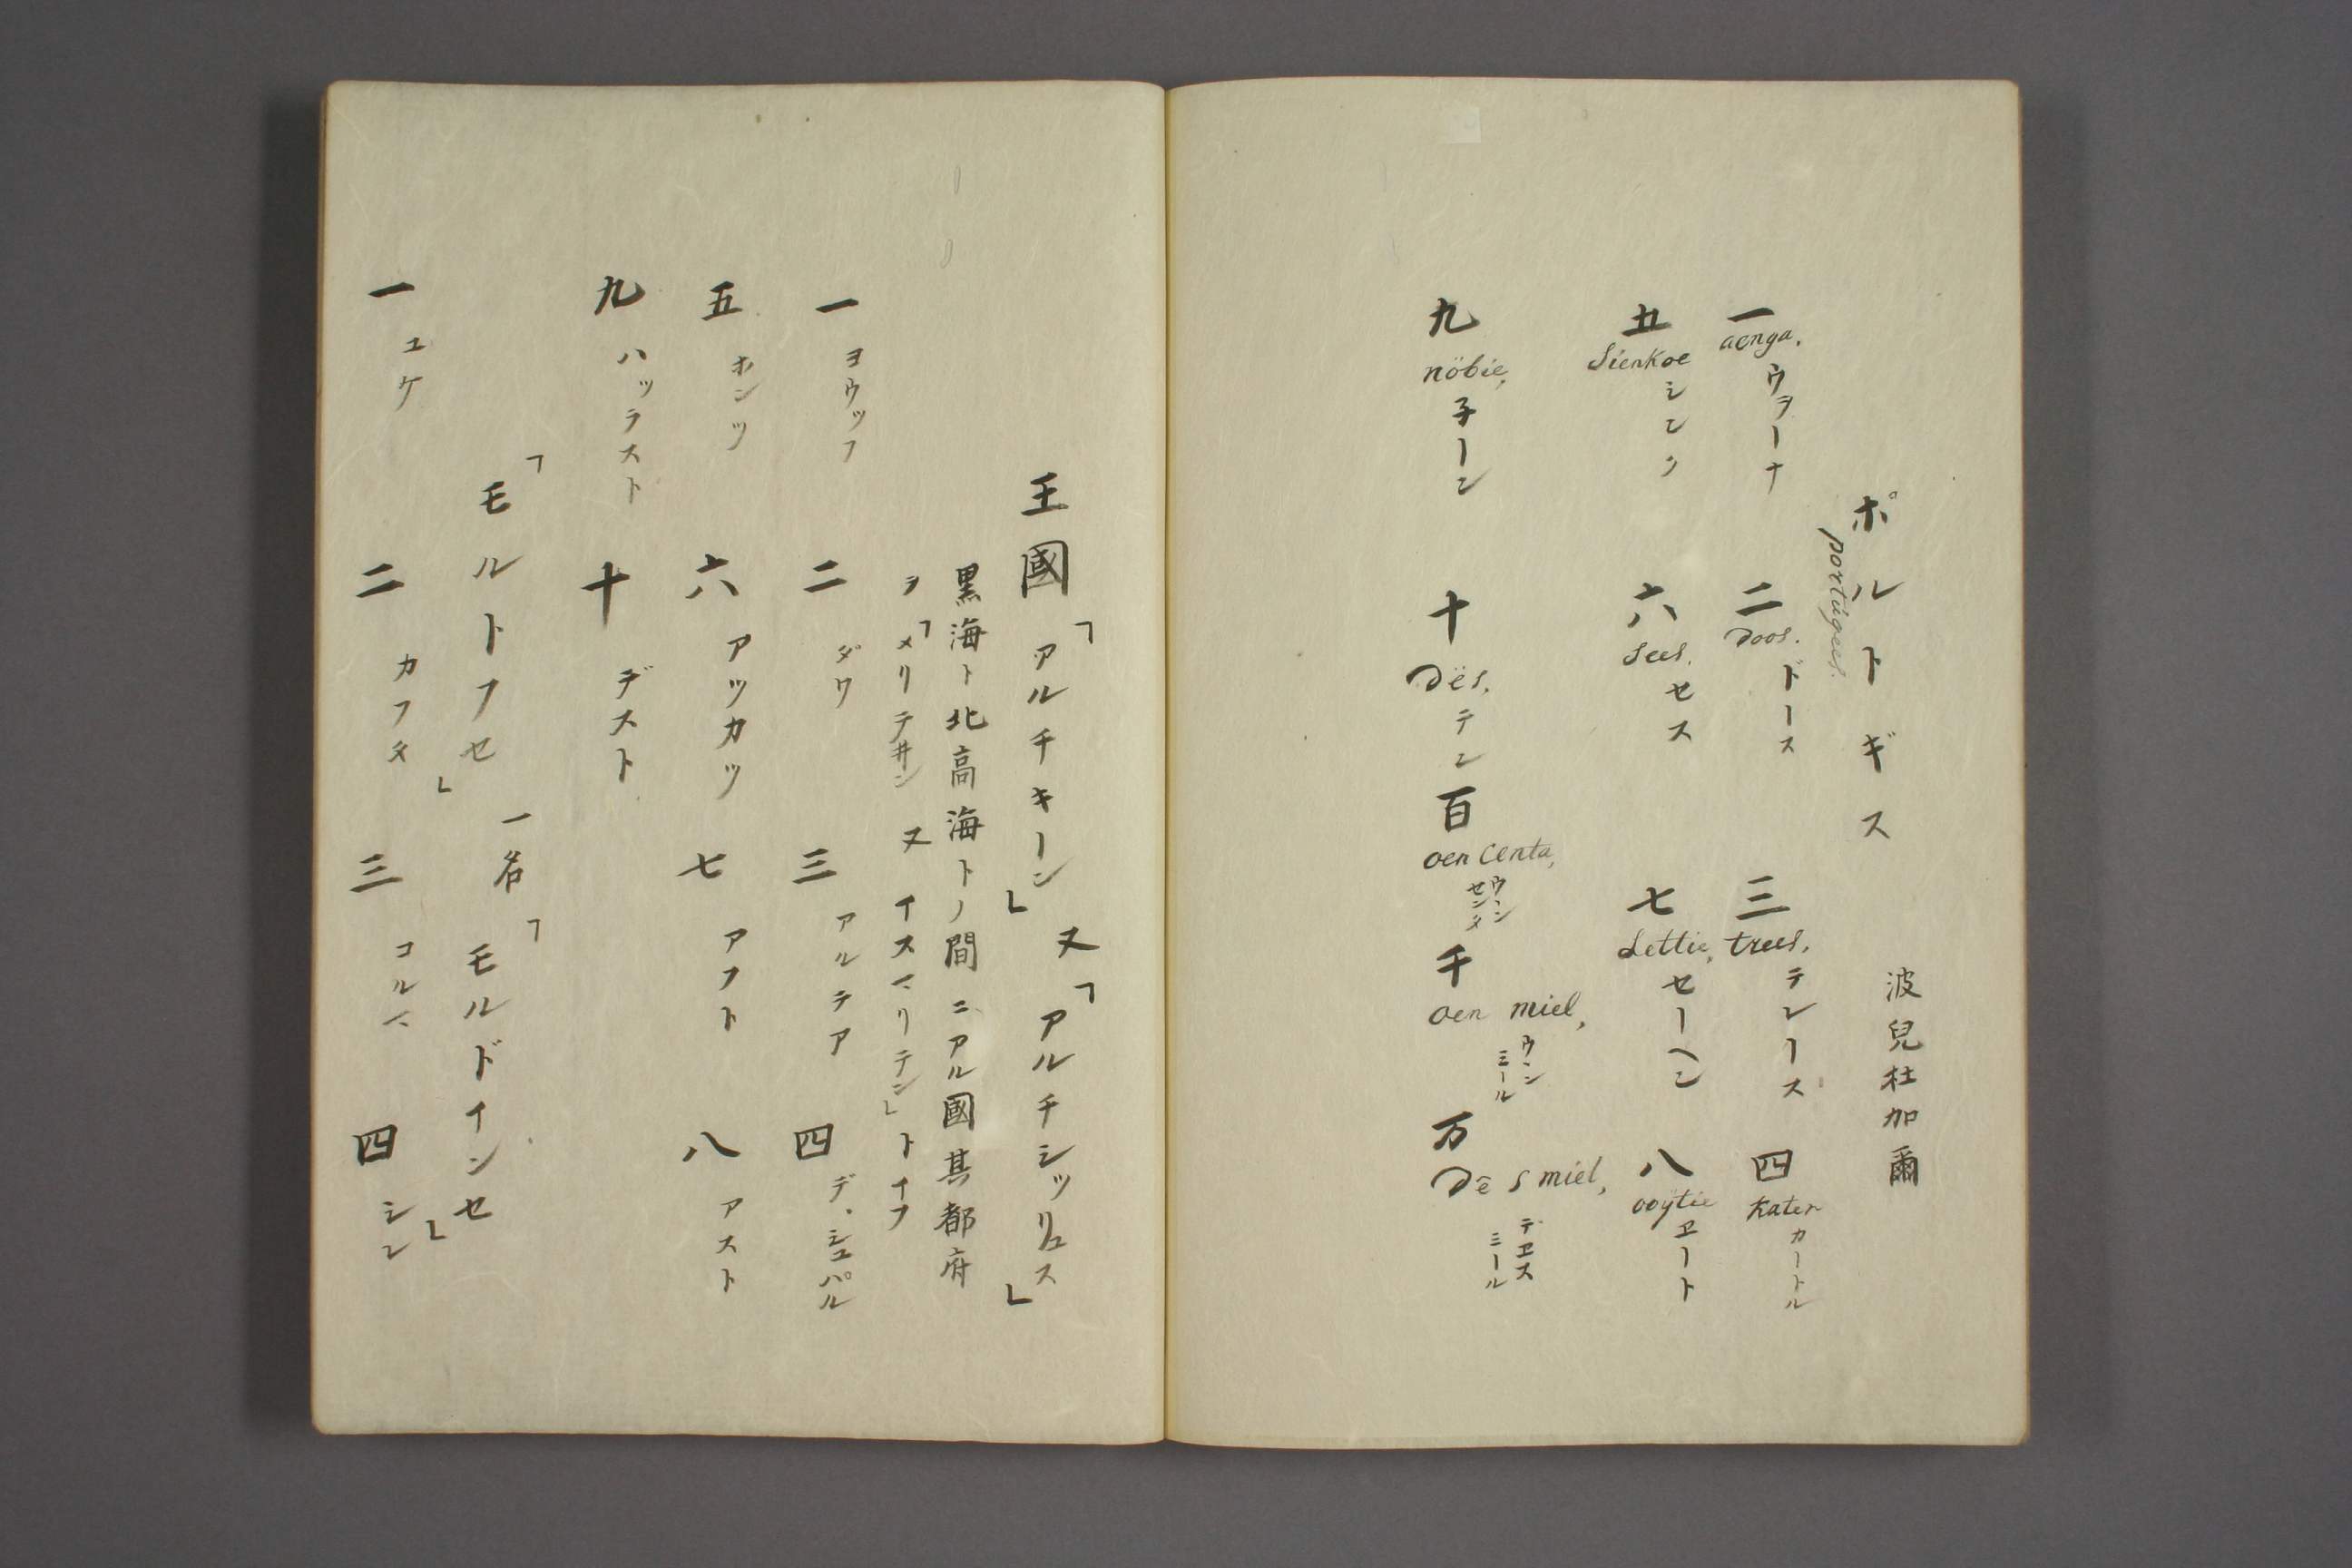 ポルトギス 波兒杜加爾
portúgees.
一 aenga, ウヲーナ 二 Doos. ドース 三 trees, テレース 四 kater カートル
五 Sienkoe シンク 六 sees. セス 七 settie, セーヘン 八 ooÿtie ヱート
九 nöbie, 子ーン 十 Dës, テン 百 oen centa, ウーン センタ 千 oen miel, ウーン ミール 万 Dê s miel, デヱス ミール
王國「アルチキーン」又「アルチシッリュス」
黒海ト北高海トノ間ニアル國其都府
ヲ「メリテヰン 又 イスマリテン」トイフ
一 ヨウッフ 二 ダワ 三 アルテア 四 デ、シュパル
五 ホンツ 六 アツカツ 七 アフト 八 アスト
九 ハッラスト 十 デスト
「モルトフセ」一名「モルドインセ」
一 ユケ 二 カフタ 三 コルマ 四 シレ